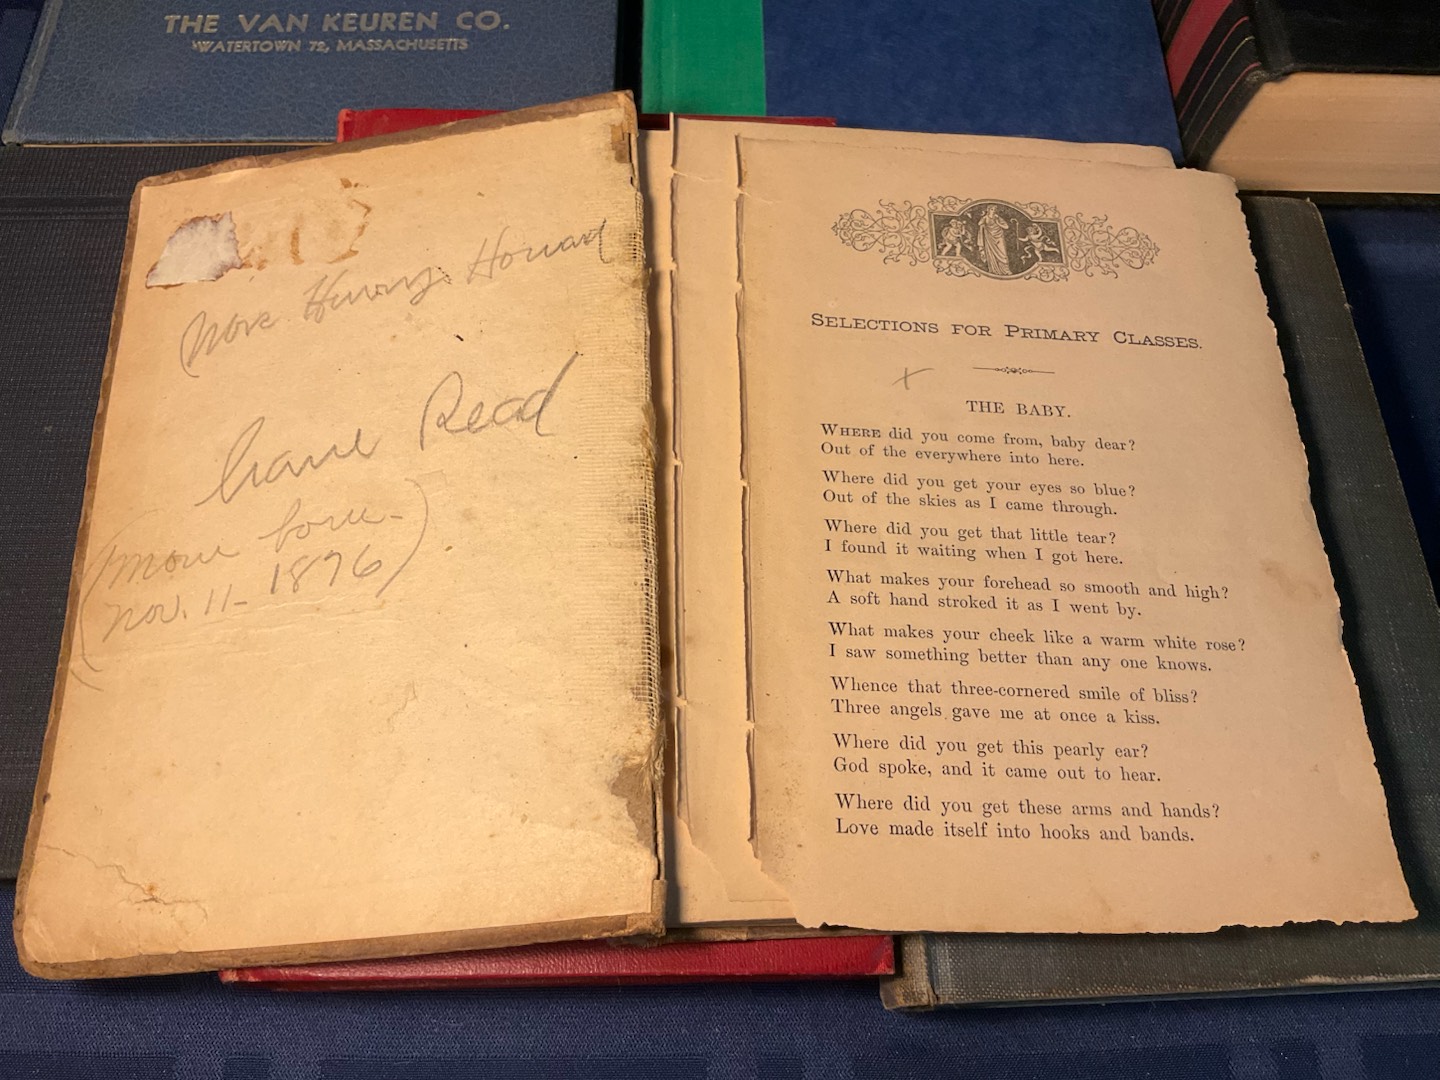 THE VAN KEUREN CO.
WATERTOWN 72, MASSACHUSETTS
Howard
Read
Nov. 11 - 1896)
SELECTIONS FOR PRIMARY CLASSES.
x
THE BABY.
WHERE did you come from, baby dear?
Out of the everywhere into here.
Where did you get your eyes so blue?
Out of the skies as I came through.
Where did you get that little tear?
I found it waiting when I got here.
What makes your forehead so smooth and high?
A soft hand stroked it as I went by.
What makes your cheek like a warm white rose?
I saw something better than any one knows.
Whence that three-cornered smile of bliss?
Three angels gave me at once a kiss.
Where did you get this pearly ear?
God spoke, and it came out to hear.
Where did you get these arms and hands?
Love made itself into hooks and bands.